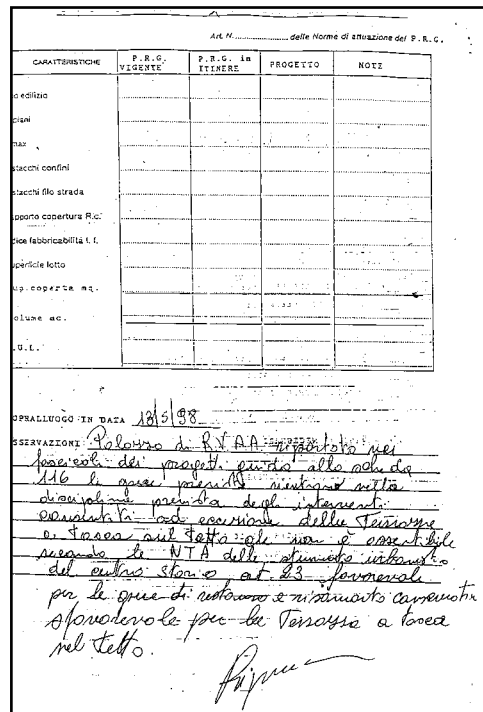 Art. N. delle Norme di attuazione del P.R.G.
CARATTERISTICHE P.R.G. VIGENTE P.R.G. in ITINERE PROGETTO NOTE
o edilizio
piani
max
stacchi confini
stacchi filo strada
pporto copertura R.c.
dice fabbricabilità I.f.
uperficie lotto
up. coperta mq.
olume mc.
.U.L.
OPRALLUOGO IN DATA 13/5/98
SSERVAZIONI Palazzo di RVAA riportato nei
fascicoli dei progetti guida alla scheda
116 le opere previste rientrano nella
disciplina prevista degli interventi
consentiti ad eccezione della Terrazza
a tasca sul tetto che non è
secondo le NTA dello strumento
del centro storico art 23 favorevole
per le opere di restauro e risanamento
sfavorevole per la Terrazza a tasca
nel tetto.